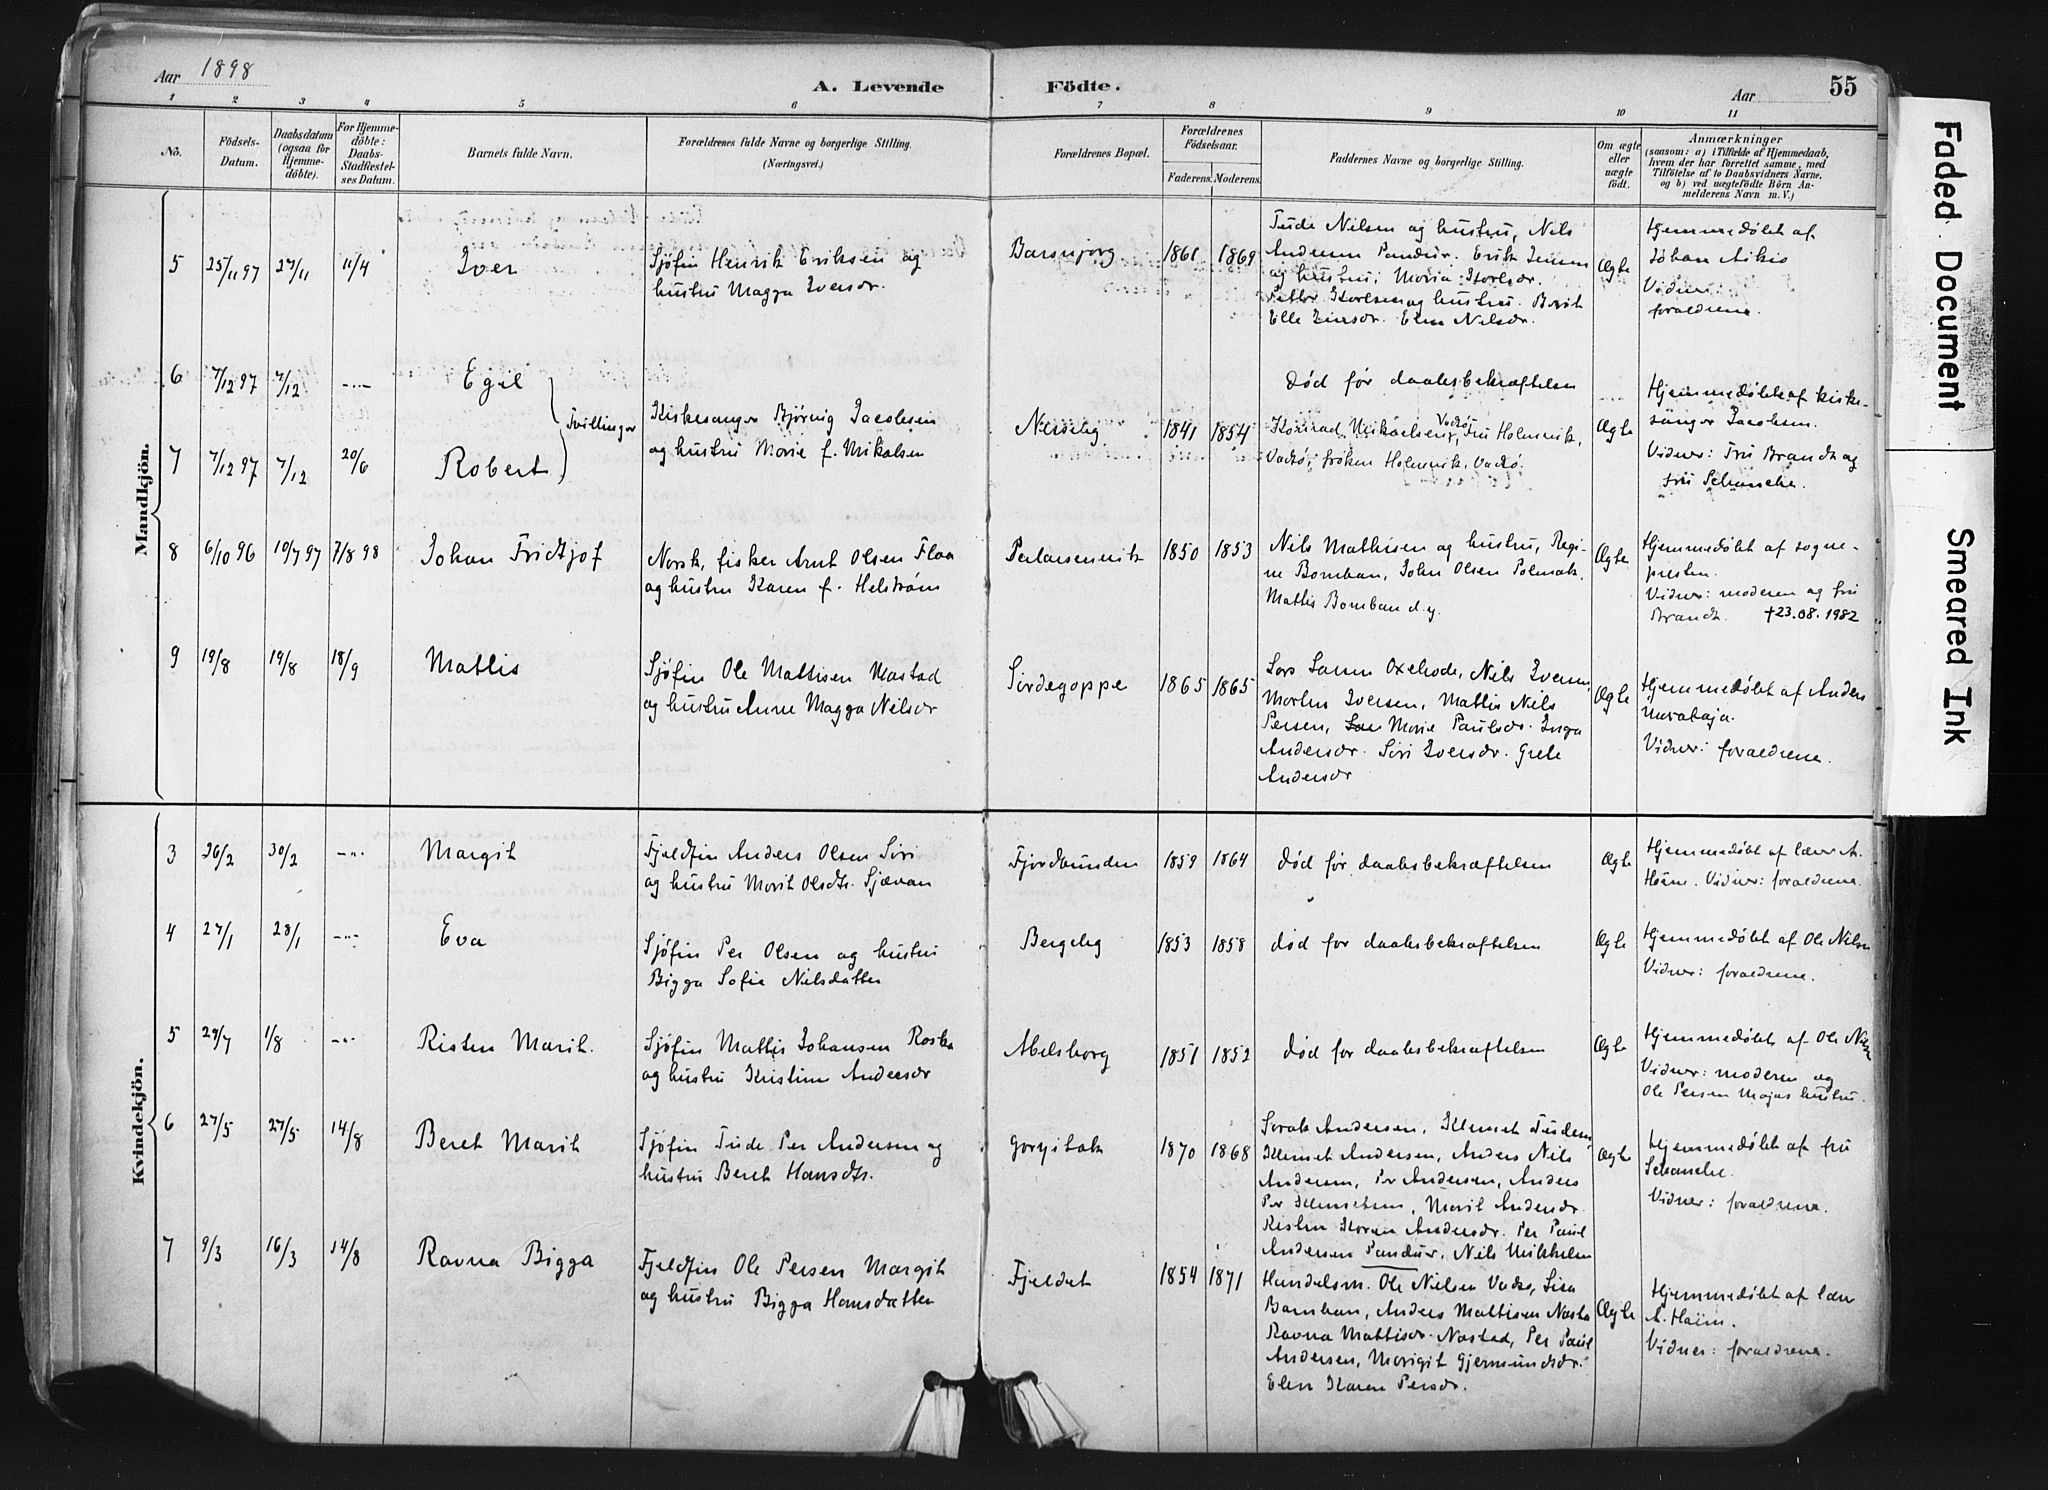 Aar 1898
A. Levende Födte.
Aar
55
1 2 3 4 5 6 7 8 9 10 11
Nö.
Födsels-Datum.
Daabsdatum (ogsaa for Hjemme-döbte).
For Hjemme-döbte: Daabs-Stadfæstel-ses Datum.
Barnets fulde Navn.
Forældrenes fulde Navne og borgerlige Stilling. (Næringsvei.)
Forældrenes Bopæl.
Forældrenes Födselsaar.
Faderens. Moderens.
Faddernes Navne og borgerlige Stilling.
Om ægte eller uægte födt.
Anmærkninger
(saasom: a) i Tilfælde af Hjemmedaab,
hvem der har forrettet samme, med
Tilföielse af to Daabsvidners Navne,
og b) ved uægtefödte Börn An-
melderens Navn m. V.)
Mandkjön.
5 25/11 97 27/11 11/4 Iver
Sjøfin Henrik Eriksen og
hustru Magga Iversdr.
1861 1869
Tude Nilsen og hustru, Nils
Andersen Pandur. Erik Iversen
og hustru, Maria
og hustru. Berit
Elle Iversdr. Elen Nilsdr.
Ægte
Hjemmedøbt af
Johan Aikio
Vidner:
forældrene.
6 7/12 97 7/12 -"- Egil
død før daabsbekræftelsen
7 7/12 97 7/12 20/6 Robert
Tvillinger
Kirkesanger Bjørnig Jacobsen
og hustru Marie f. Mikalsen
Nesseby
1841 1854
Konrad Mikaelsen, Vadsø, Fru Holmvik,
Vadsø, frøken Holmvik, Vadsø.
Ægte
Hjemmedøbt af kirke-
sanger Jacobsen.
Vidner: Fru Brandt og
fru Schanche.
8 6/10 96 10/7 97 7/8 98 Johan Fridtjof
Norsk, fisker Arnt Olsen Flaa
og hustru Karen f. Helstrøm
Perlarsenvik
1850 1853
Nils Mathisen og hustru, Regi-
ne Bomban, John Olsen Polmak,
Mattis Bomban d.y.
Ægte
Hjemmedøbt af sogne-
presten.
Vidner: moderen og fru
Brandt. †23.08.1982
9 19/8 19/8 18/9 Mattis
Sjøfin Ole Mattisen Nastad
og hustru Anne Magga Nilsdr
Sirdegoppe
1865 1865
Lars Larsen Oxehode, Nils Iversen,
Morten Iversen, Mattis Nils
Persen, Marie Paulsdr. Inga
Andersdr. Siri Iversdr. Grete
Andersdr
Ægte
Hjemmedøbt af Anders
Vidner: forældrene.
Kvindekjön.
3 26/2 30/2 -"- Margit
Fjeldfin Anders Olsen Siri
og hustru Marit Olsdtr. Sjævan
Fjordbunden
1859 1864
død før daabsbekræftelsen
Ægte
Hjemmedøbt af lærer A.
Vidner: forældrene.
4 27/1 28/1 -"- Eva
Sjøfin Per Olsen og hustru
Bigga Sofie Nilsdatter
Bergeby
1853 1858
død før daabsbekræftelsen
Ægte
Hjemmedøbt af Ole Nilsen
Vidner: forældrene.
5 29/7 1/8 -"- Risten Marit.
Sjøfin Mattis Johansen Roska
og hustru Kristine Andersdr
Abelsborg
1851 1852
død før daabsbekræftelsen
Ægte
Hjemmedøbt af Ole Nilsen
Vidner: moderen og
Ole Persen Majas hustru.
6 27/5 27/5 14/8 Beret Marit
Sjøfin Tude Per Andersen og
hustru Beret Hansdtr.
1870 1868
Andersen, Klemet Tudesen
Klemet Andersen, Anders Nils
Andersen, Per Andersen, Anders
Per Klemetsen, Marit Andersdr.
Kristen Karen Andersdr. Per Paul
Andersen Pandur, Nils Mikkelsen
Ægte
Hjemmedøbt af fru
Schanche.
Vidner: forældrene.
7 9/3 16/3 14/8 Ravna Bigga
Fjeldfin Ole Persen Margit
og hustru Bigga Hansdatter
Fjeldet
1854 1871
Handelsm. Ole Nielsen Vadsø, Lisa
Bomban, Anders Mattisen Nasta
Ravna Mattisdr. Nastad, Per Paul
Andersen, Marigit Gjermundsdr.
Elen Karen Persdr.
Ægte
Hjemmedøbt af lær
Vidner: forældrene.
Faded Document
Smeared Ink